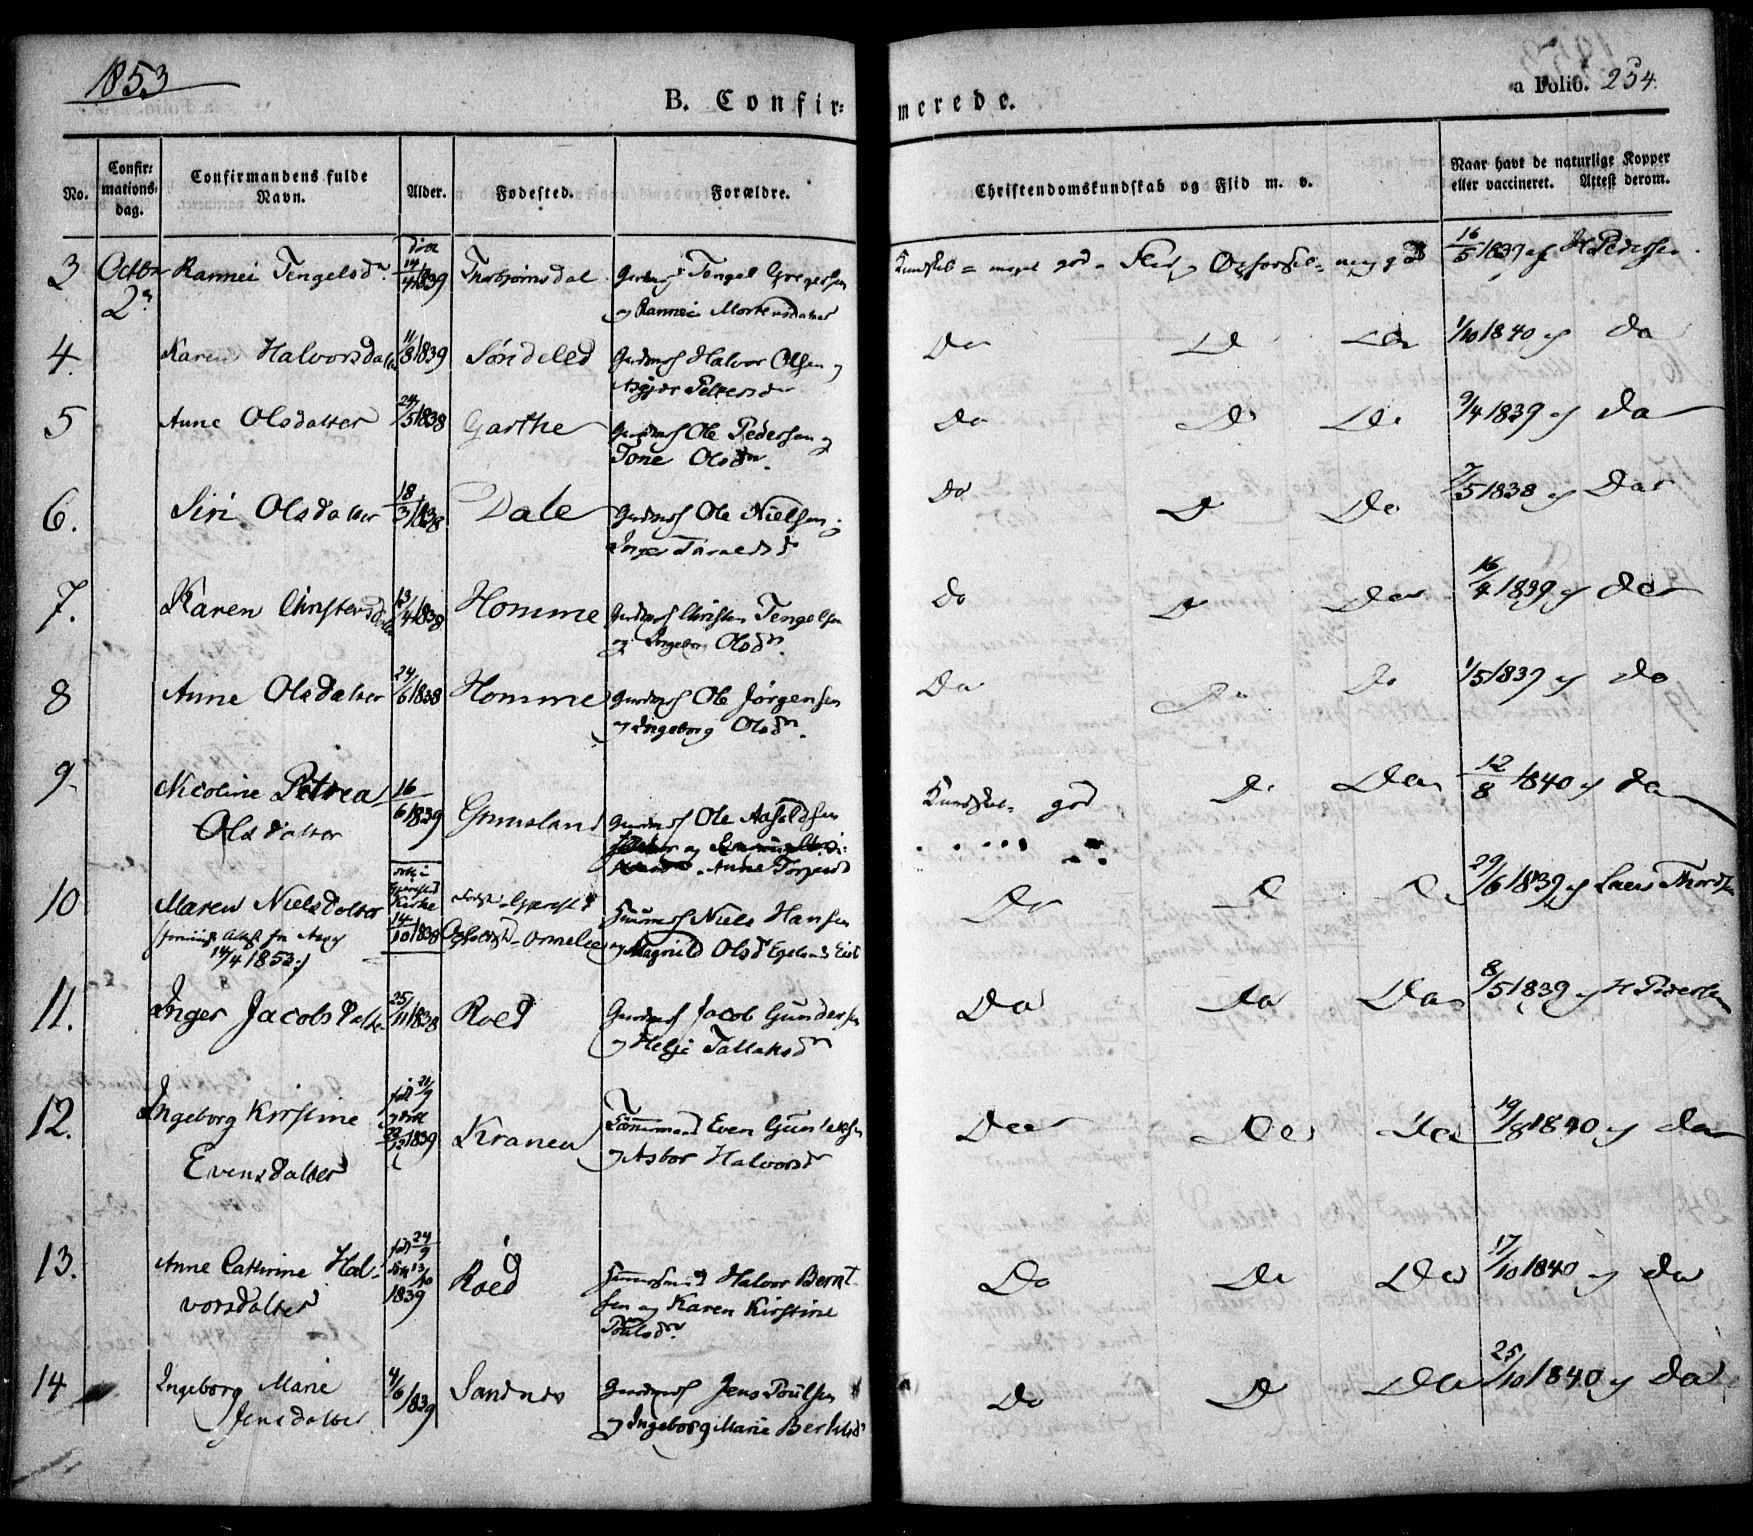 1853
a Folio. 234.
B. Confir: merede.
No.
Confir: mations: dag.
Confirmandens fulde Navn.
Alder.
Fødested.
Forældre.
Christendomskundskab og Flid m. v.
Naar havt de naturlige Kopper
eller vaccineret. Attest derom.
3 Octbr Rannei Tengelsdr. 14/4 1839 Thorbjørnsdal Gaardm Tengel Gregersen Kundskab - meget god - Flid og Opførsel - meg god 16/5 1839 af H Pedersen
2n og Rannei Mortensdatter
4. Karen Halvorsdatter 11/8 1839 Søndeled Gaardm Halvor Olsen og Do Do Do 1/10 1840 af do
Asgjer Pedersdr
5 Anne Olsdatter 24/5 1838 Garthe Gaardm Ole Pedersen og Do Do Do 9/4 1839 af do
Tone Olsdtr.
6. Siri Olsdatter 18/3 1838 Dale Gaardm Ole Nielsen og Do Do Do 7/5 1838 af Do
Inger Taraldsd
7. Karen Christensdatter 13/4 1838 Homme Gaardm Christen Tengelsen Do Do Do 16/4 1839 af do
og Ingeborg Olsdr.
8 Anne Olsdatter 24/6 1838 Homme Gaardm Ole Jørgensen Do Do Do 1/5 1839 af do
og Ingeborg Olsdr.
9. Nicoline Petrea 16/6 1839 Grimsland Gaardm Ole Kundskab - god Do Do 12/8 1840 af do
Olsdatter
Anne
10 Maren Nielsdatter Kirke 14/10 1838 Niels Hansen Do Do Do 29/6 1839 af Lars
14/4 1853 og Magnild Olsd
11. Inger Jacobsdatter 25/11 1838 Roed Gaardm Jacob Gundersen Do Do Do 8/5 1839 af H Pedersen
og Helje Tallaksdr
12. Ingeborg Kirstine fød 21/9 1839 Kranen Even Gunleksen Do Do Do 19/8 1840 af do
Evensdatter og Asbor Halvorsdr
13. Anne Cathrine Hal- fød 24/9 døbt 13/10 Roed Halvor Bernt- Do Do Do 17/10 1840 af do
vorsdatter 1839 sen og Karen Kirstine
Poulsdr.
14 Ingeborg Marie 4/6 1839 Sandnes Gaardm Jens Poulsen Do Do Do 25/10 1840 af do
Jensdatter og Ingeborg Marie